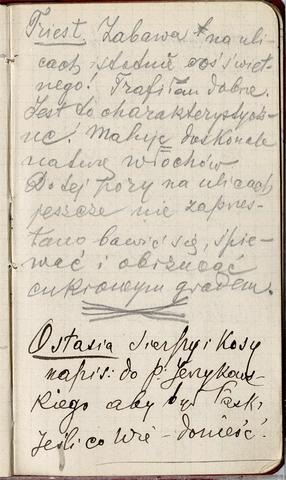 Triest. Zabawa * na uli-
cach istotnie coś świet-
nego! Trafiłam dobrze.
Jest to charakterystycz-
ne! Maluje doskonale
naturę włochów.
Do tej pory na ulicach
jeszcze nie zaprzes-
tano bawić się, śpie-
wać i obrzucać
cukrowym gradem.
Ostasia Sierpy i Kosy
napis: do p. Jerzykow-
kiego aby był łask.
jeśli co wie - donieść.